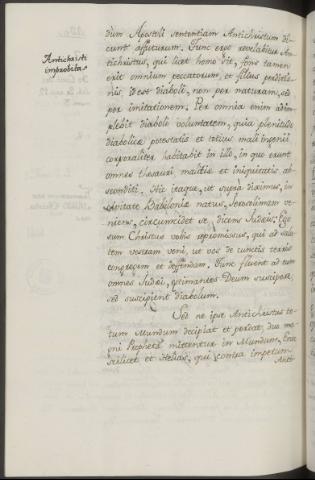 dum Apostoli sententiam Antichristum di-
Antichristi
improbitas
cunt affuturum. Tunc ergo revelabitur An-
tichristus, qui licet homo sit, fons tamen
erit omnium peccatorum, et filius perditio-
nis, id est diaboli, non per naturam, sed
per imitationem. Per omnia enim adim-
plebit diaboli voluntatem, quia plenitudo
diabolicæ potestatis et totius mali ingenii
corporaliter habitabit in illo, in quo erunt
omnes thesauri malitiæ et iniquitatis ab-
sconditi. Hic itaque, ut supra diximus, in
civitate Babiloniæ natus, Jerosolimam ve-
niens, circumcidet se, dicens Judæis: Ego
sum Christus vobis repromissus, qui ad salu-
tem vestram veni, ut vos de cunctis terris
congregem et deffendam. Tunc fluent ad eum
omnes Judæi, existimantes Deum suscipere,
sed suscipient diabolum.
Sed ne ipse Antichristus to-
tum Mundum decipiat et perdat, duo ma-
gni Prophetæ mittentur in Mundum, Enoc
scilicet et Helias, qui contra impetum
Anti-